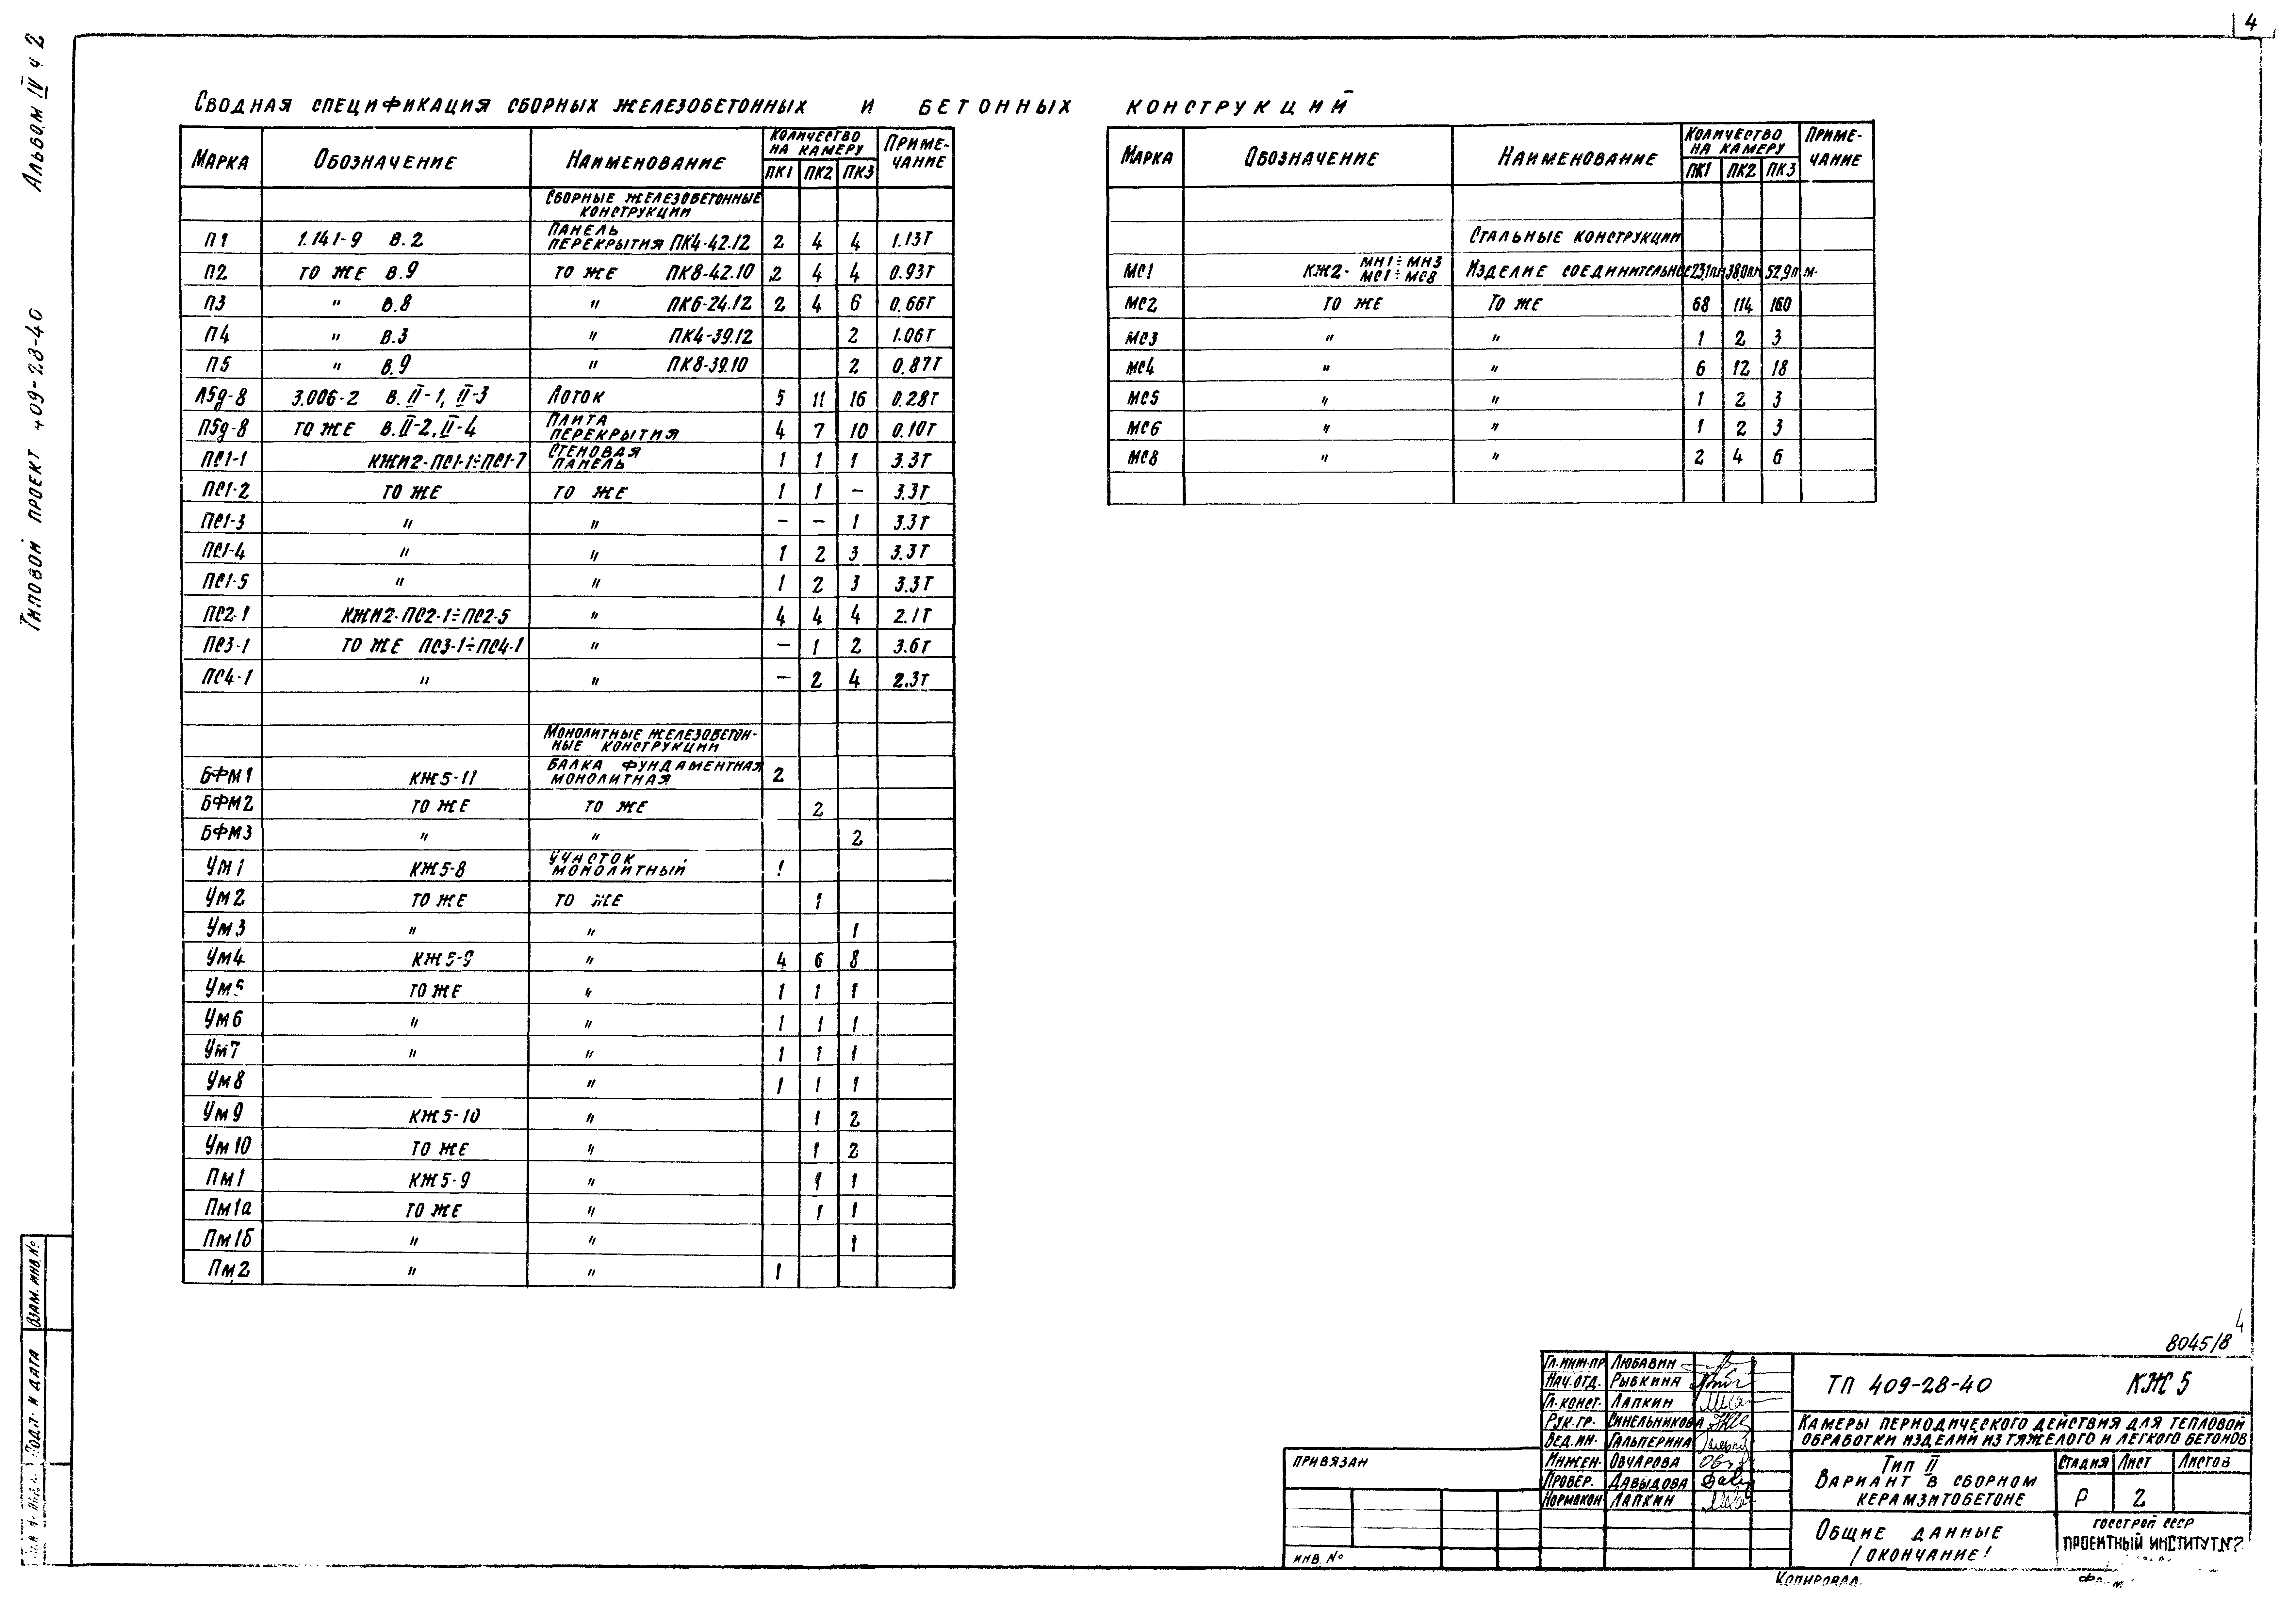 4
Альбом IV ч 2
Типовой проект 409-28-40
Сводная спецификация сборных железобетонных и бетонных конструкций
Марка Обозначение Наименование Количество на камеру Примечание
ПК1 ПК2 ПК3
Сборные железобетонные конструкции
П1 1.141-9 в.2 Панель перекрытия ПК4-42.12 2 4 4 1.13т
П2 то же в.9 то же ПК8-42.10 2 4 4 0.93т
П3 " в.8 " ПК6-24.12 2 4 6 0.66т
П4 " в.3 " ПК4-39.12 2 1.06т
П5 " в.9 " ПК8-39.10 2 0.87т
Л5д-8 3.006-2 в. II-1, II-3 Лоток 5 11 16 0.28т
П5д-8 то же в.II-2, II-4 Плита перекрытия 4 7 10 0.10т
ПС1-1 КЖИ2-ПС1-1÷ПС1-7 Стеновая панель 1 1 1 3.3т
ПС1-2 то же то же 1 1 — 3.3т
ПС1-3 " " — — 1 3.3т
ПС1-4 " " 1 2 3 3.3т
ПС1-5 " " 1 2 3 3.3т
ПС2-1 КЖИ2-ПС2-1÷ПС2-5 " 4 4 4 2.1т
ПС3-1 то же ПС3-1÷ПС4-1 " — 1 2 3.6т
ПС4-1 " " — 2 4 2.3т
Монолитные железобетонные конструкции
БФМ1 КЖ5-11 Балка фундаментная монолитная 2
БФМ2 то же то же 2
БФМ3 " " 2
УМ1 КЖ5-8 Участок монолитный 1
УМ2 то же то же 1
УМ3 " " 1
УМ4 КЖ5-9 " 4 6 8
УМ5 то же " 1 1 1
УМ6 " " 1 1 1
УМ7 " " 1 1 1
УМ8 " 1 1 1
УМ9 КЖ5-10 " 1 2
УМ10 то же " 1 2
ПМ1 КЖ5-9 " 1 1
ПМ1а то же " 1 1
ПМ1б " " 1
ПМ2 " " 1
Марка Обозначение Наименование Количество на камеру Примечание
ПК1 ПК2 ПК3
Стальные конструкции
МС1 КЖ2- МН1÷МН3 МС1÷МС8 Изделие соединительное 23,1п.м 38.0п.м 52,9п.м.
МС2 то же То же 68 114 160
МС3 " " 1 2 3
МС4 " " 6 12 18
МС5 " " 1 2 3
МС6 " " 1 2 3
МС8 " " 2 4 6
Взам. инв. №
Подп. и дата
8045/8
4
Гл. инж. пр Любавин
Нач. отд. Рыбкина
Гл. конст. Лапкин
Рук. гр. Синельникова
Вед. ин. Гальперина
Инжен. Овчарова
Провер. Давыдова
Нормокон Лапкин
ТП 409-28-40 КЖ5
Камеры периодического действия для тепловой
обработки изделий из тяжелого и легкого бетонов
Тип II
Вариант в сборном
керамзитобетоне
Стадия Лист Листов
Р 2
Общие данные
/окончание/
Госстрой СССР
Проектный институт №2
Привязан
Инв. №
Копировал